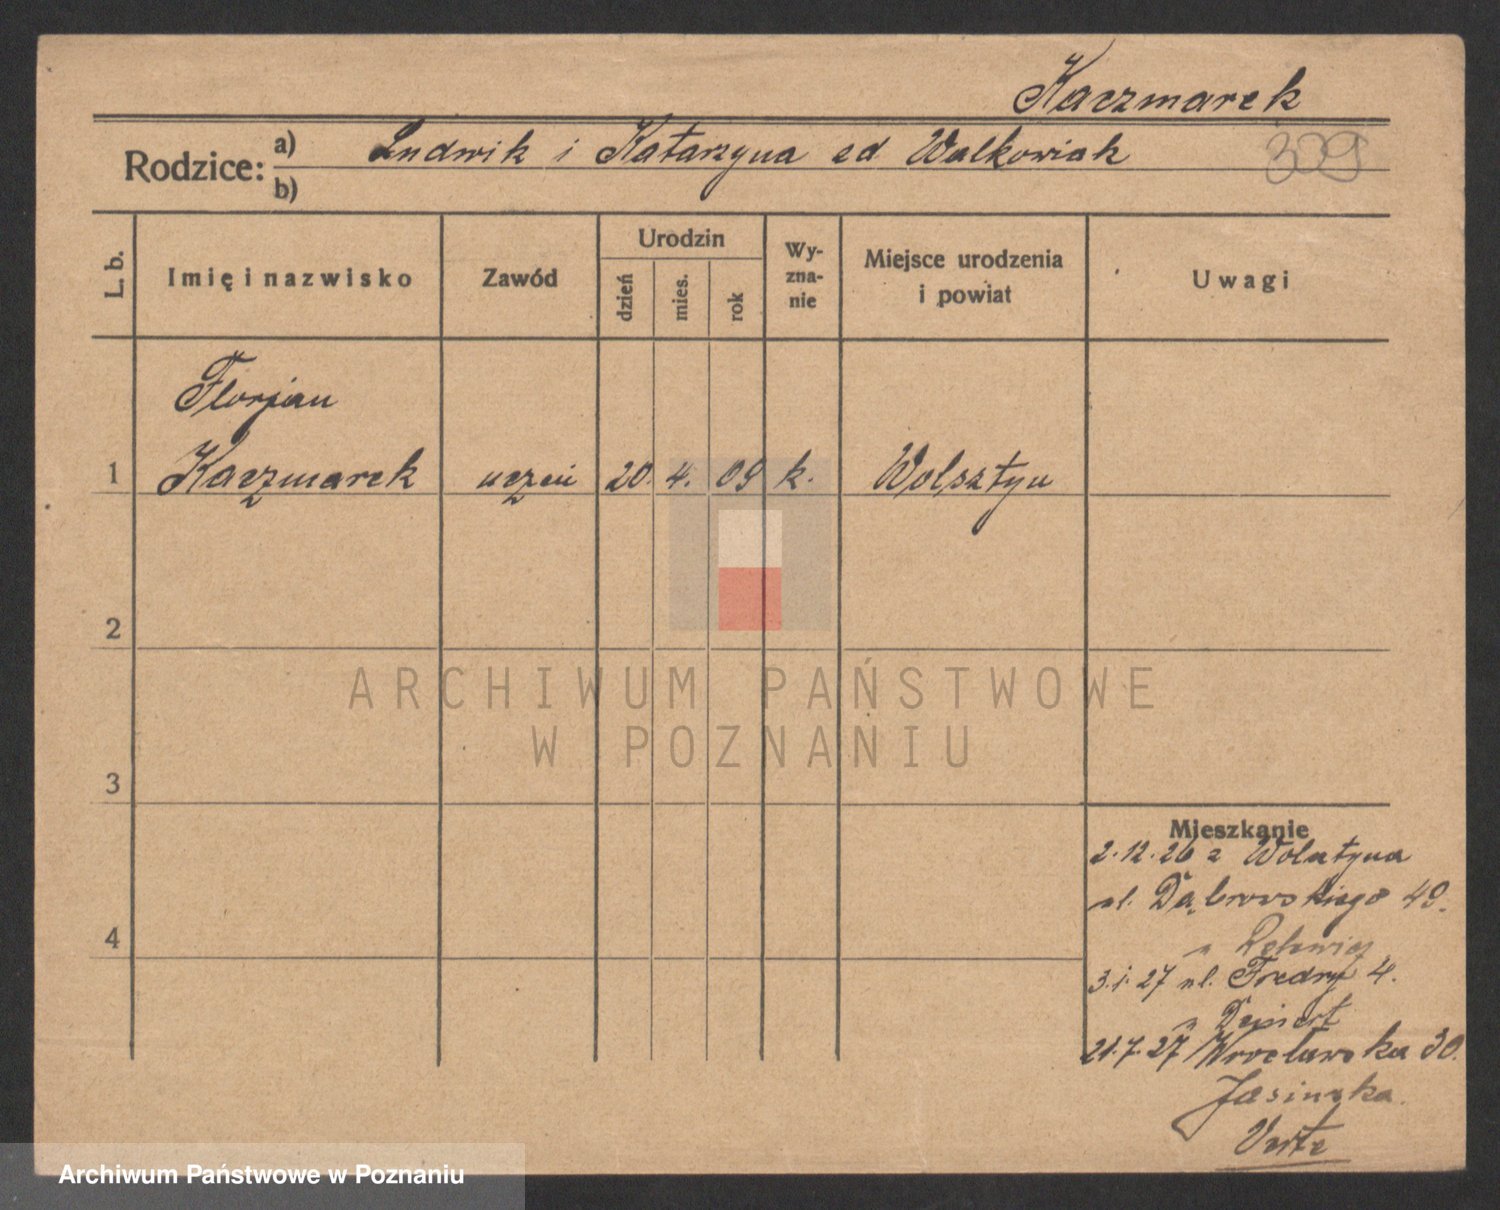 Kaczmarek
Rodzice: a) Ludwik i Katarzyna zd Walkowiak
309
b)
L. b.
Imię i nazwisko
Zawód
Urodzin
dzień
mies.
rok
Wy-
zna-
nie
Miejsce urodzenia
i powiat
Uwagi
Florjan
1 Kaczmarek uczeń 20. 4. 09 k. Wolsztyn
2
3
4
ARCHIWUM PAŃSTWOWE
W POZNANIU
Mieszkanie
2.12.26 z Wolsztyna
ul. Dąbrowskiego 49.
3.1.27 ul. Fredry 4.
21.7.27 Wrocławska 30.
Jasińska.
Verte
Archiwum Państwowe w Poznaniu